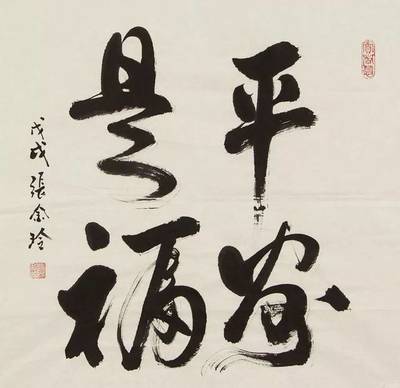 平安
是福
戊戌張金玲